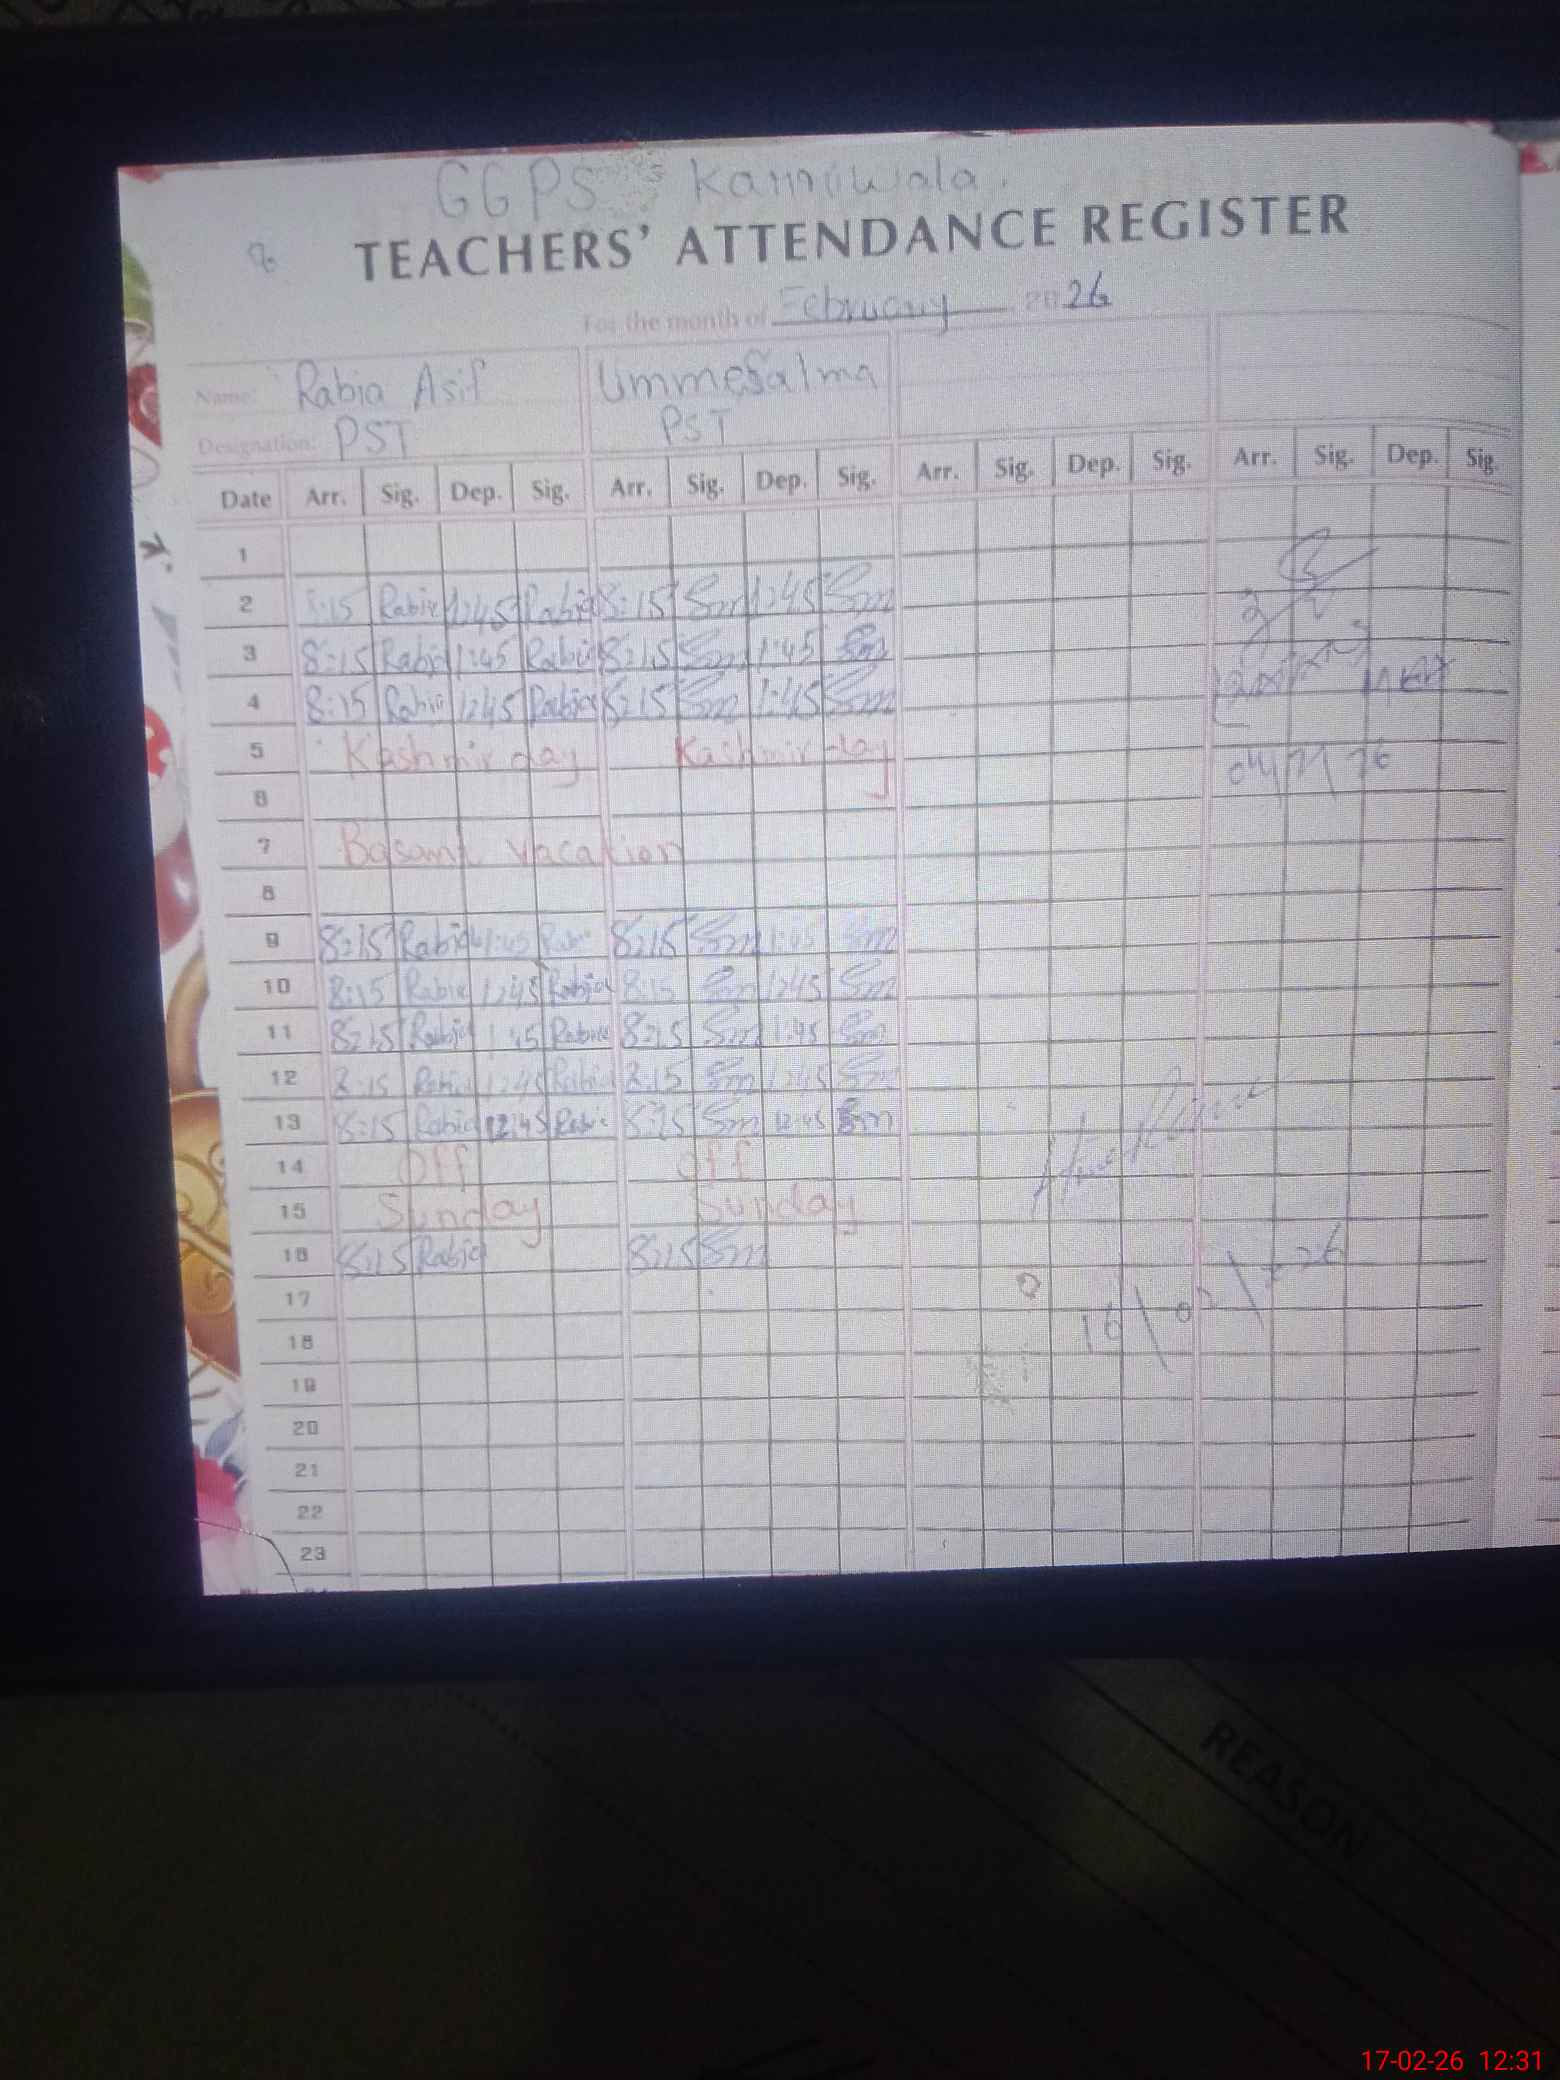 GGPS Kamiwala.
TEACHERS' ATTENDANCE REGISTER
For the month of February 2026
Name: Rabia Asif UmmeSalma
Designation: PST PST
Date Arr. Sig. Dep. Sig. Arr. Sig. Dep. Sig. Arr. Sig. Dep. Sig. Arr. Sig. Dep. Sig.
1
2 8:15 Rabia 1:45 Rabia 8:15 Sm 1:45 Sm
3 8:15 Rabia 1:45 Rabia 8:15 Sm 1:45 Sm
4 8:15 Rabia 1:45 Rabia 8:15 Sm 1:45 Sm
5 Kashmir day Kashmir day
6
7 Basant vacation
8
9 8:15 Rabia 1:45 Rabia 8:15 Sm 1:45 Sm
10 8:15 Rabia 1:45 Rabia 8:15 Sm 1:45 Sm
11 8:15 Rabia 1:45 Rabia 8:15 Sm 1:45 Sm
12 8:15 Rabia 1:45 Rabia 8:15 Sm 1:45 Sm
13 8:15 Rabia 12:45 Rabia 8:15 Sm 12:45 Sm
14 Off Off
15 Sunday Sunday
16 8:15 Rabia 8:15 Sm
16/02/26
17
18
19
20
21
22
23
REASON
17-02-26 12:31